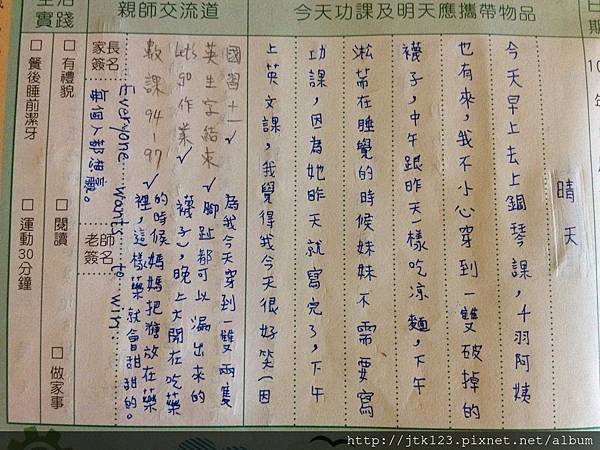 今天功課及明天應攜帶物品
晴天
今天早上去上鋼琴課，千羽阿姨
也有來，我不小心穿到一雙破掉的
襪子，中午跟昨天一樣吃涼麵，下午
淞芾在睡覺的時候妹妹不需要寫
功課，因為她昨天就寫完了，下午
上英文課，我覺得我今天很好笑(因
為我今天穿到一雙兩隻
腳趾都可以漏出來的
襪子)，晚上大開在吃藥
的時候媽媽把糖放在藥
裡，這樣藥就會甜甜的。
親師交流道
國習十一✓
英生字結束✓
Let's go 作業✓
數課94-97✓
Everyone wants to win...
每個人都想贏。
家長簽名
老師簽名
生活實踐
□ 有禮貌
□ 閱讀
□ 做家事
□ 餐後睡前潔牙
□ 運動30分鐘
日期
年
http://jtk123.pixnet.net/album